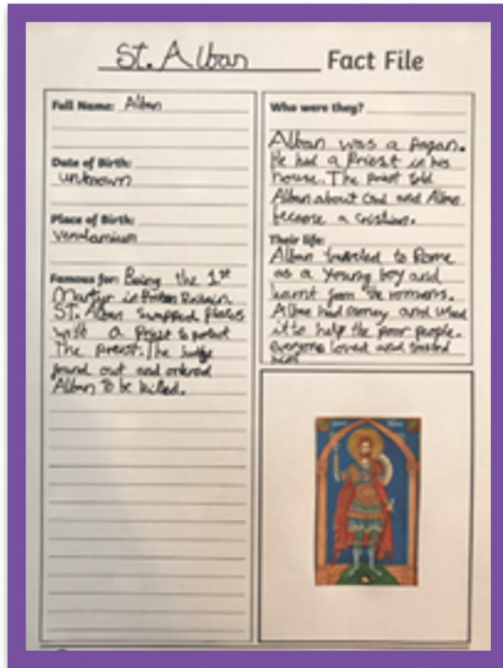 St. Alban Fact File
Full Name: Alban
Date of Birth:
unknown
Place of Birth:
Verulamium
Famous for: Being the 1st
Martyr in Britain.
ST. Alban swapped places
with a Priest to protect
The priest. The Judge
found out and ordered
Alban To be killed.
Who were they?
Alban was a Pagan.
He had a Priest in his
house. The priest told
Alban about God and Alban
became a
Their life:
Alban traveled to Rome
as a Young boy and
learnt from the romans.
Alban had money and used
it to help the poor people.
Everyone loved and trusted
him